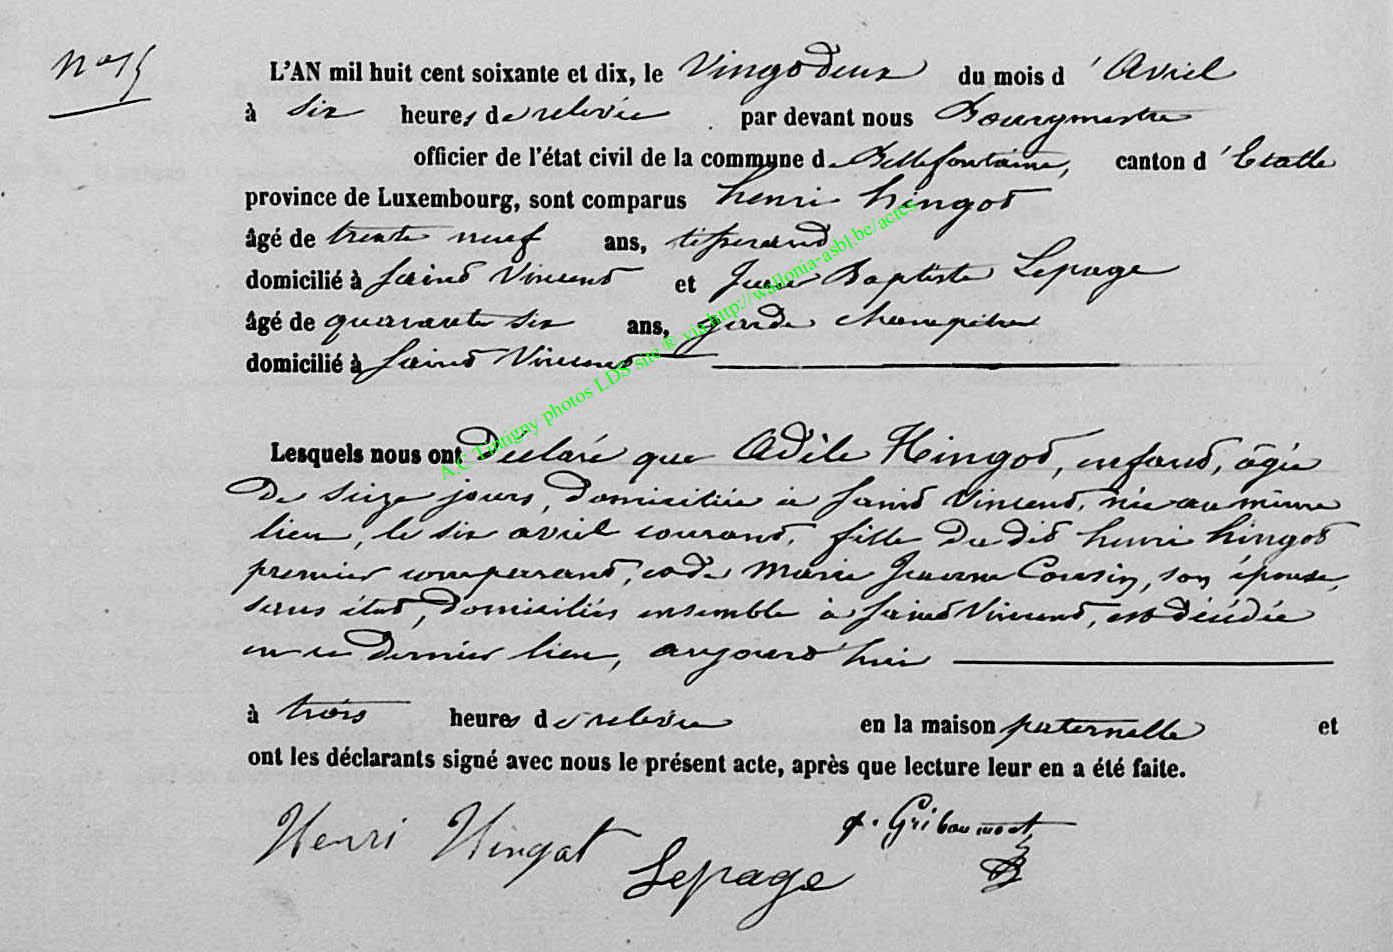 N° 15
L'AN mil huit cent soixante et dix, le Vingt deux du mois d'Avril
à six heures de relevée par devant nous Bourgmestre
officier de l'état civil de la commune de Bellefontaine, canton d'Etalle
province de Luxembourg, sont comparus henri hingot
âgé de trente neuf ans, tisserand
domicilié à saint Vincent et Jean Baptiste Lepage
âgé de quarante six ans, garde champêtre
domicilié à saint Vincent
Lesquels nous ont Déclaré que Adèle Hingot, enfant, âgée
De seize jours, domiciliée à saint Vincent, née au même
lieu, le six avril courant, fille Du dit henri hingot
premier comparant, et de Marie Jeanne Cousin, son épouse,
sans état, domiciliés ensemble à saint Vincent, est décédée
en ce Dernier lieu, aujourd'hui
à trois heures de relevée en la maison paternelle et
ont les déclarants signé avec nous le présent acte, après que lecture leur en a été faite.
Henri Hingat Lepage Gribaumont
A.C Tintigny photos LDS site ® via http://wallonia-asbl.be/actes